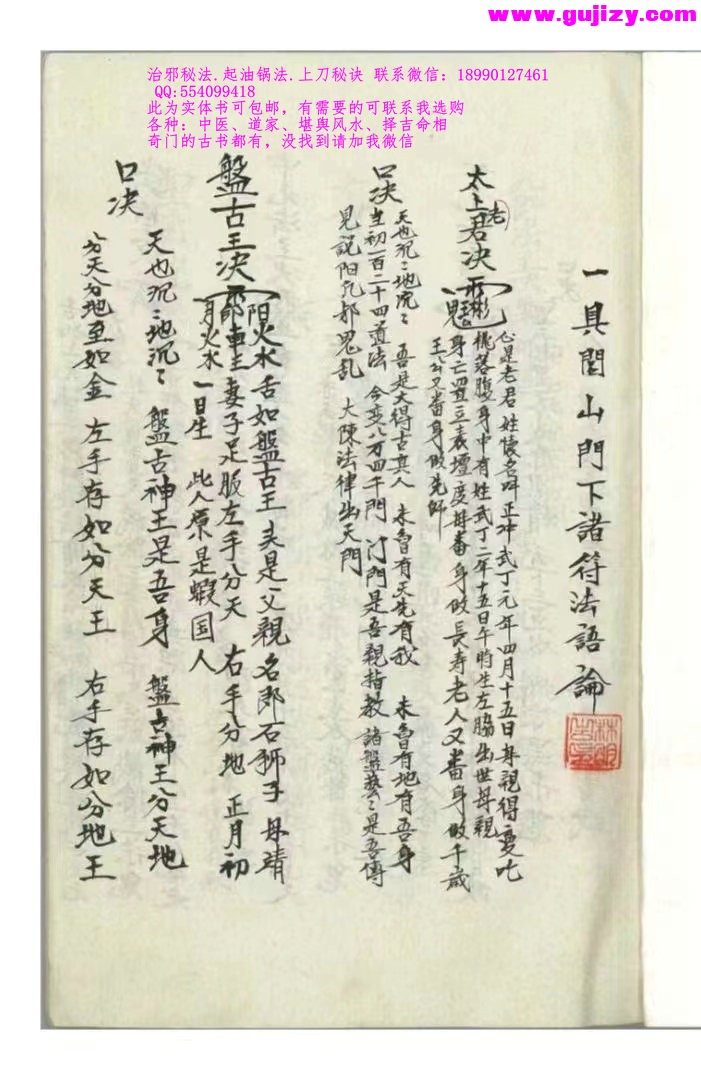 www.gujizy.com
治邪秘法.起油锅法.上刀秘诀 联系微信：18990127461
QQ:554099418
此为实体书可包邮，有需要的可联系我选购
各种：中医、道家、堪舆风水、择吉命相
奇门的古书都有，没找到请加我微信
一具閭山門下諸符法語論
太上老君决
心是老君姓懷名叫正冲武丁元年四月十五日母親得变吃
桃落腹身中有姓武丁二年十五日午時生左脇出世母親
身亡置立表壇度母番身做長寿老人又番身做千歲
王公又番身做先師
口决
天也沉〻地沉〻 吾是大得古真人 未曾有天先有我 未曾有地有吾身
当初一百二十四道法 今变八万四千門 门門是吾親指教 諸盤藝〻是吾傳
見說阳凡邪鬼乱 大陳法律出天門
盤古王决
阳火水舌如盤古王 夫是父親名郎石獅子 母靖
郎車主妻子足服左手分天 右手分地 正月初
月火水 一日生 此人原是蝦国人
口决
天也沉〻地沉〻 盤古神王是吾身 盤古神王分天地
分天分地至如金 左手存如分天王 右手存如分地王